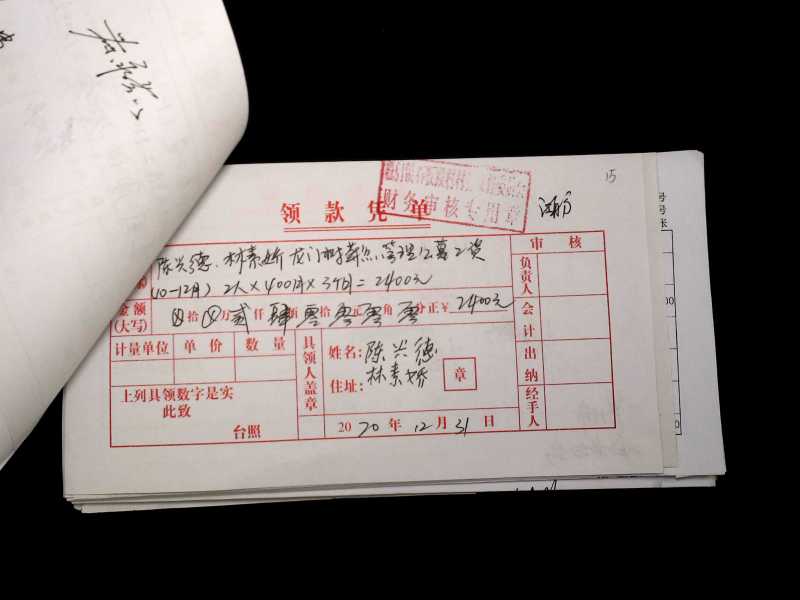 15
财务审核专用章
领款凭单
陈兴德、林素娇
(10-12月) 2人×400/月×3个月=2400元
金额(大写) ⊗拾⊗万贰仟肆佰零拾零元零角零分正￥2400元
计量单位 单价 数量
上列具领数字是实
此致
台照
具领人盖章
姓名: 陈兴德
住址: 林素娇
章
2020年12月31日
审核
负责人
会计
出纳
经手人
号
号
张